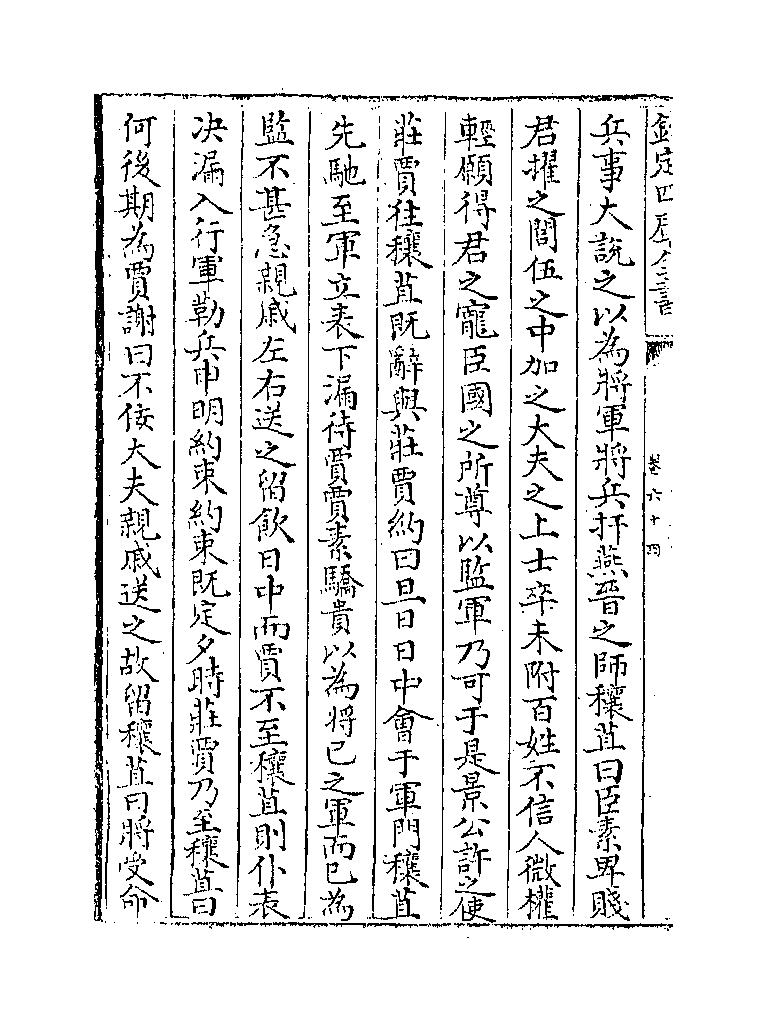 欽定四庫全書
卷六十四
兵事大說之以為將軍將兵扞燕晉之師穰苴曰臣素卑賤
君擢之閭伍之中加之大夫之上士卒未附百姓不信人微權
輕願得君之寵臣國之所尊以監軍乃可于是景公許之使
莊賈往穰苴既辭與莊賈約曰旦日日中會于軍門穰苴
先馳至軍立表下漏待賈賈素驕貴以為將已之軍而已為
監不甚急親戚左右送之留飲日中而賈不至穰苴則仆表
决漏入行軍勒兵申明約束約束既定夕時莊賈乃至穰苴曰
何後期為賈謝曰不佞大夫親戚送之故留穰苴曰將受命